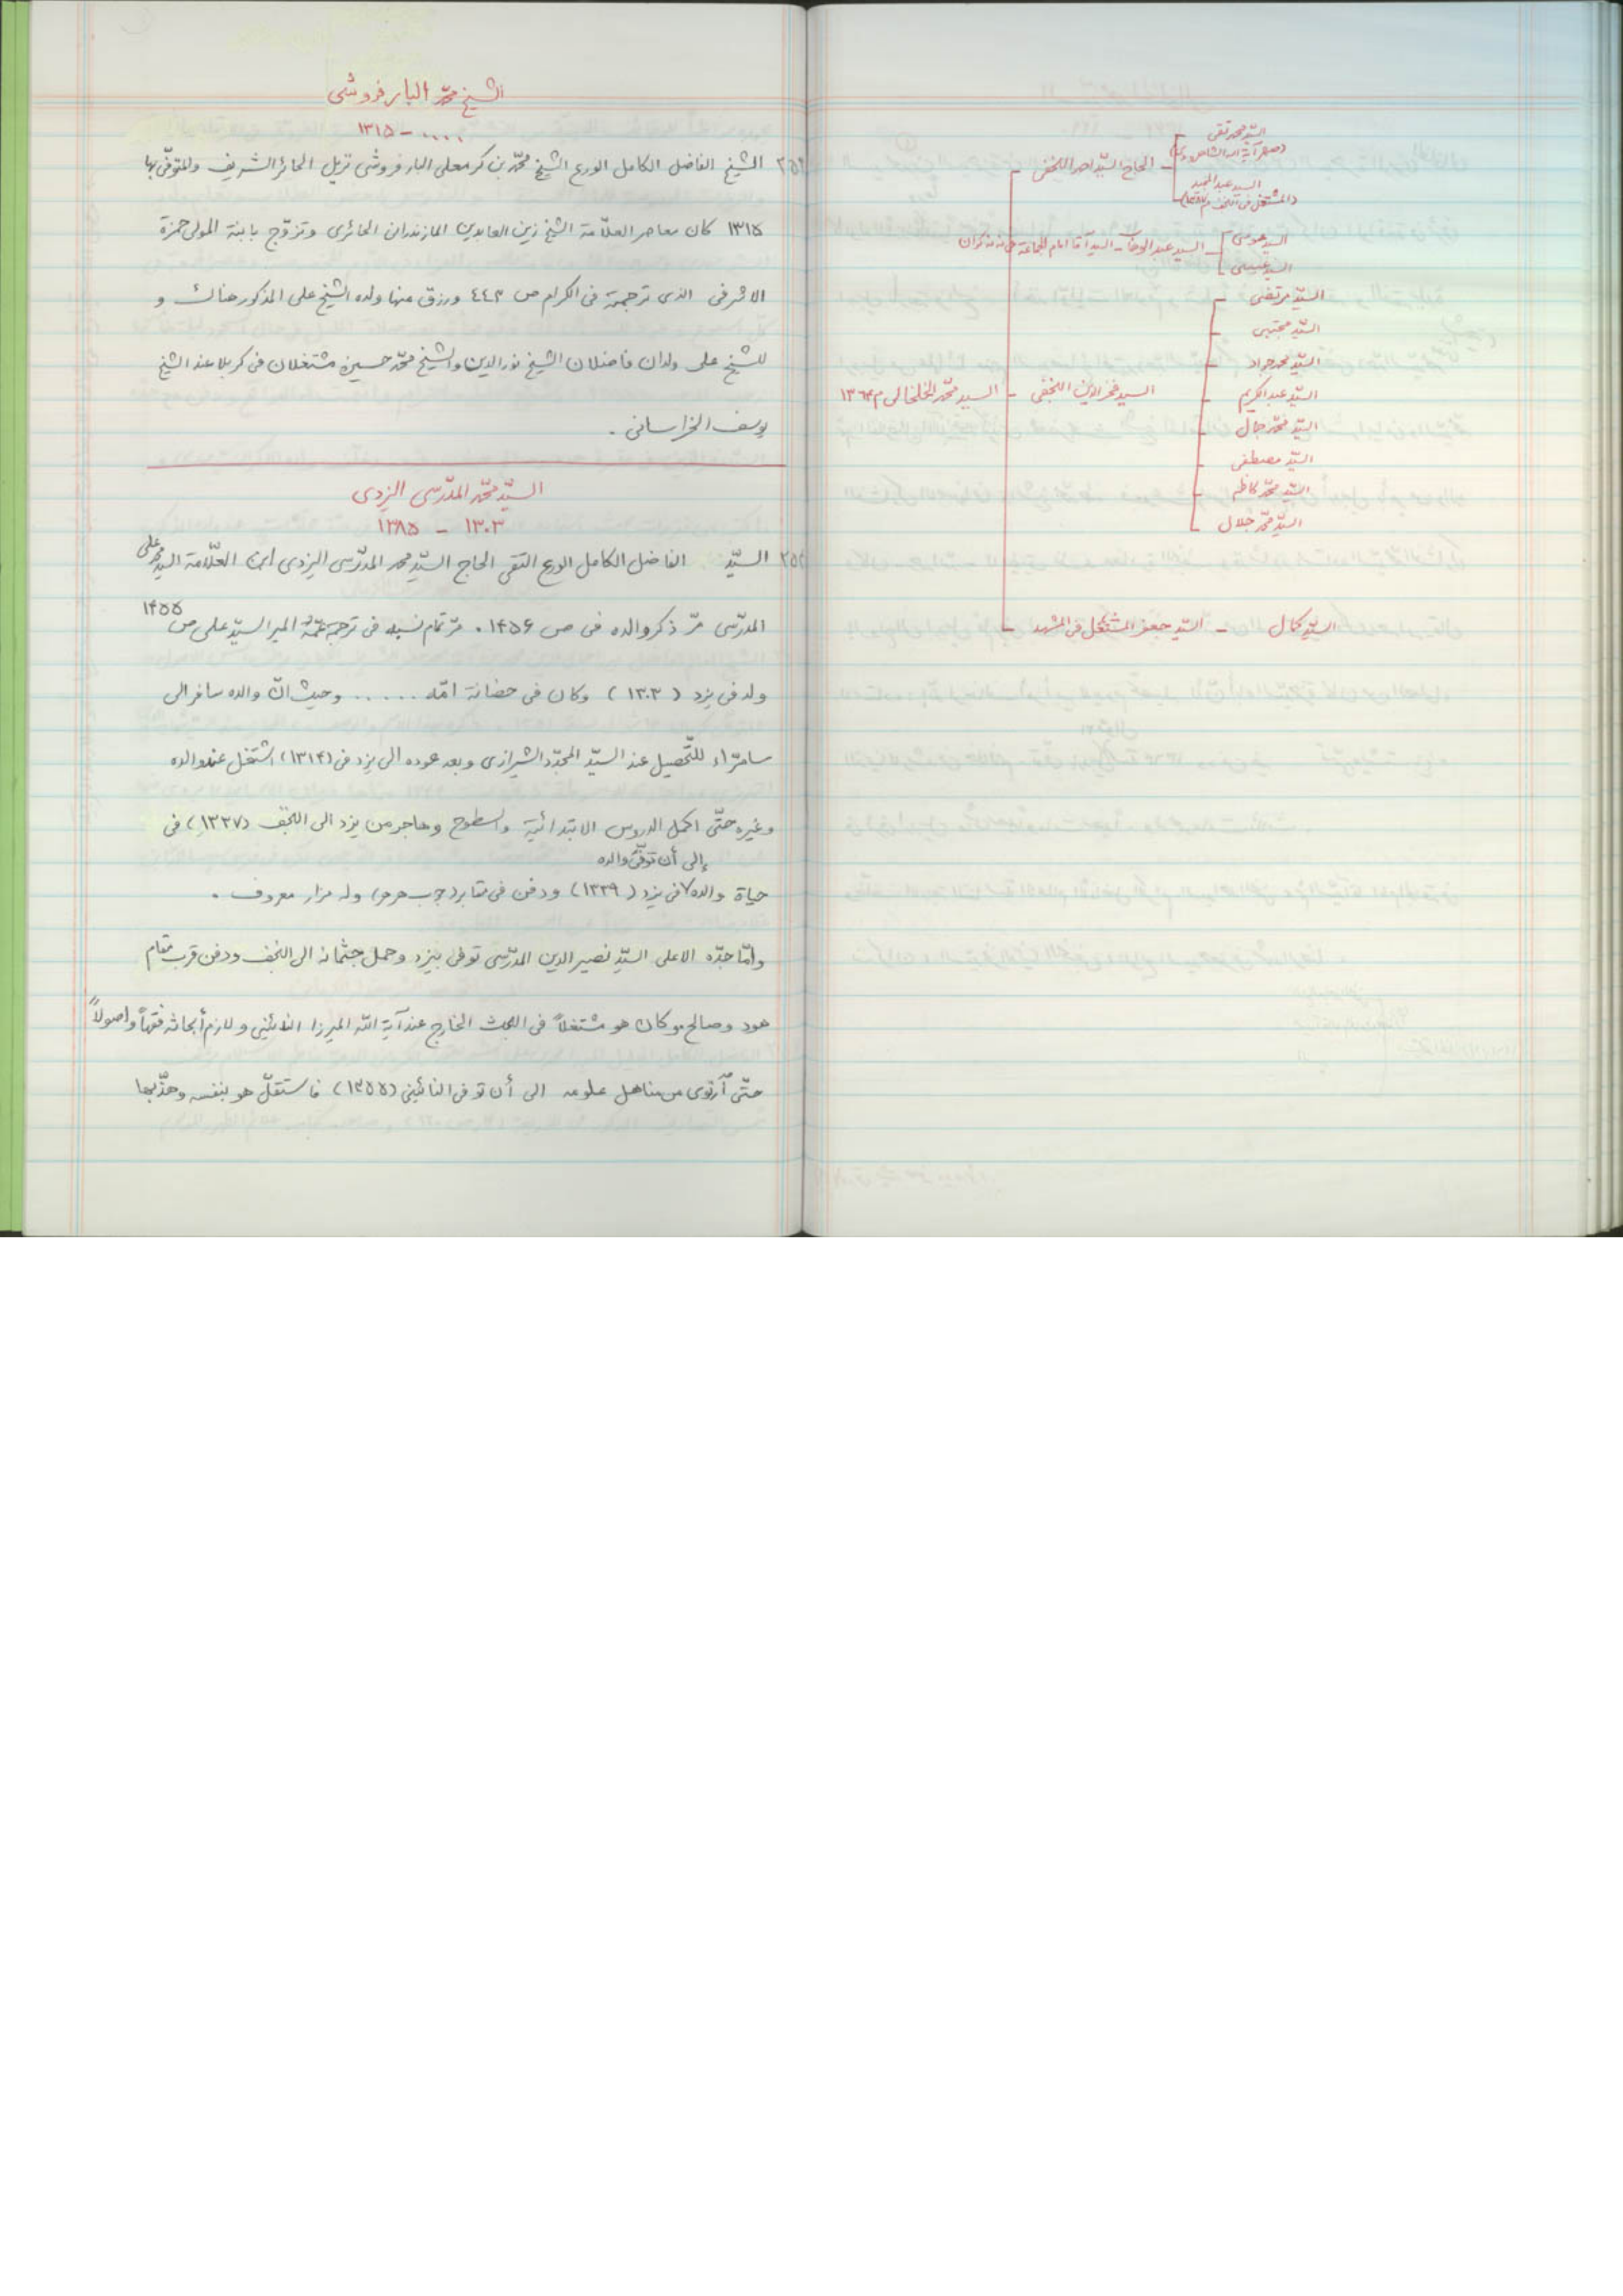 السيّد محمد تقى
(صهر آية الله الشاهرودى)
الحاج السيّد ناصر النجفى
السيد عبد المجيد
(المشتغل فى النجف
السيد موسى
السيد عبد الوهاب - السيد آقا امام الجماعة فى
السيد عيسى
السيّد مرتضى
السيّد مجتبى
السيّد محمد جواد
السيد محمّد الخلخالى م ١٣٦٤
السيد فخر الدين النجفى
السيّد عبد الكريم
السيّد محمّد جمال
السيّد مصطفى
السيّد محمّد كاظم
السيّد محمّد جلال
السيّد كمال - السيّد جعفر المشتغل فى المشهد
الشيخ محمّد البارفروشى
.... - ١٣١٥
الشيخ الفاضل الكامل الورع الشيخ محمّد بن كرمعلى البارفروشى نزيل الحائر الشريف والمتوفّى بها
١٣١٥ كان معاصر العلاّمة الشيخ زين العابدين المازندرانى الحائرى وتزوّج بابنة المولى حمزة
الاشرفى الذى ترجمته فى الكرام ص ٤٤٣ ورزق منها ولده الشيخ على المذكور هناك و
للشيخ على ولدان فاضلان الشيخ نور الدين والشيخ محمّد حسين مشتغلان فى كربلا عند الشيخ
يوسف الخراسانى .
السيّد محمّد المدرّسى اليزدى
١٣٠٣ - ١٣٨٥
السيّد الفاضل الكامل الورع التقى الحاج السيّد محمد المدرّسى اليزدى ابن العلّامة السيد محمد على
المدرّسى مرّ ذكر والده فى ص ١٤٥۶ . مرّ تمام نسبه فى ترجمة عمّه المير السيّد على ص ١۴۵۵
ولد فى يزد (١٣٠٣) وكان فى حضانة امّه ...... وحيث انّ والده سافر الى
سامرّاء للتّحصيل عند السيّد المجدّد الشيرازى وبعد عوده الى يزد فى (١٣١۴) اشتغل عند والده
وغيره حتّى اكمل الدروس الابتدائية والسطوح وهاجر من يزد الى النجف (١٣٣٧) فى
إلى أن توفّى والده
حياة والده فى يزد (١٣٣٩) ودفن فى مقابر (جوب هرهر) وله مزار معروف .
وامّا جدّه الاعلى السيّد نصير الدين المدرّسى توفى بيزد وحمل جثمانه الى النجف ودفن قرب مقام
هود وصالح وكان هو مشتغلاً فى البحث الخارج عند آية الله الميرزا النائينى ولازم أبحاثه فقهاً واصولاً
حتّى أرتوى من مناهل علومه الى أن توفى النائينى (١٣۵۵) فاستقلّ هو بنفسه وهذّبها